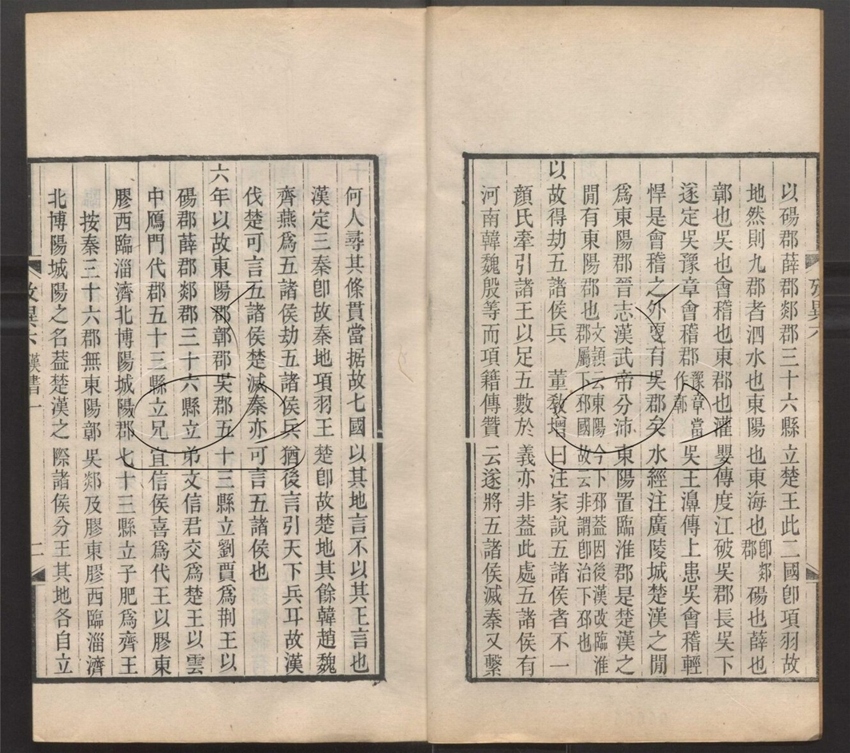 以碭郡薛郡郯郡三十六縣立楚王此二國卽項羽故
地然則九郡者泗水也東陽也東海也卽郯郡碭也薛也
鄣也吳也會稽也東郡也灌嬰傳度江破吳郡長吳下
遂定吳豫章會稽郡豫章當作鄣吳王濞傳上患吳會稽輕
悍是會稽之外更有吳郡矣水經注廣陵城楚漢之閒
爲東陽郡晉志漢武帝分沛東陽置臨淮郡是楚漢之
閒有東陽郡也文穎云東陽今下邳蓋因後漢改臨淮郡屬下邳國故云非謂卽治下邳也
以故得劫五諸侯兵 董敎增曰注家說五諸侯者不一
顏氏牽引諸王以足五數於義亦非蓋此處五諸侯有
河南韓魏殷等而項籍傳贊云遂將五諸侯滅秦又繫
攷異六
何人尋其條貫當据故七國以其地言不以其王言也
漢定三秦卽故秦地項羽王楚卽故楚地其餘韓趙魏
齊燕爲五諸侯劫五諸侯兵猶後言引天下兵耳故漢
伐楚可言五諸侯楚滅秦亦可言五諸侯也
六年以故東陽郡鄣郡吳郡五十三縣立劉賈爲荆王以
碭郡薛郡郯郡三十六縣立弟文信君交爲楚王以雲
中鴈門代郡五十三縣立兄宜信侯喜爲代王以膠東
膠西臨淄濟北博陽城陽郡七十三縣立子肥爲齊王
按秦三十六郡無東陽鄣吳郯及膠東膠西臨淄濟
北博陽城陽之名蓋楚漢之際諸侯分王其地各自立
攷異六 漢書一 二